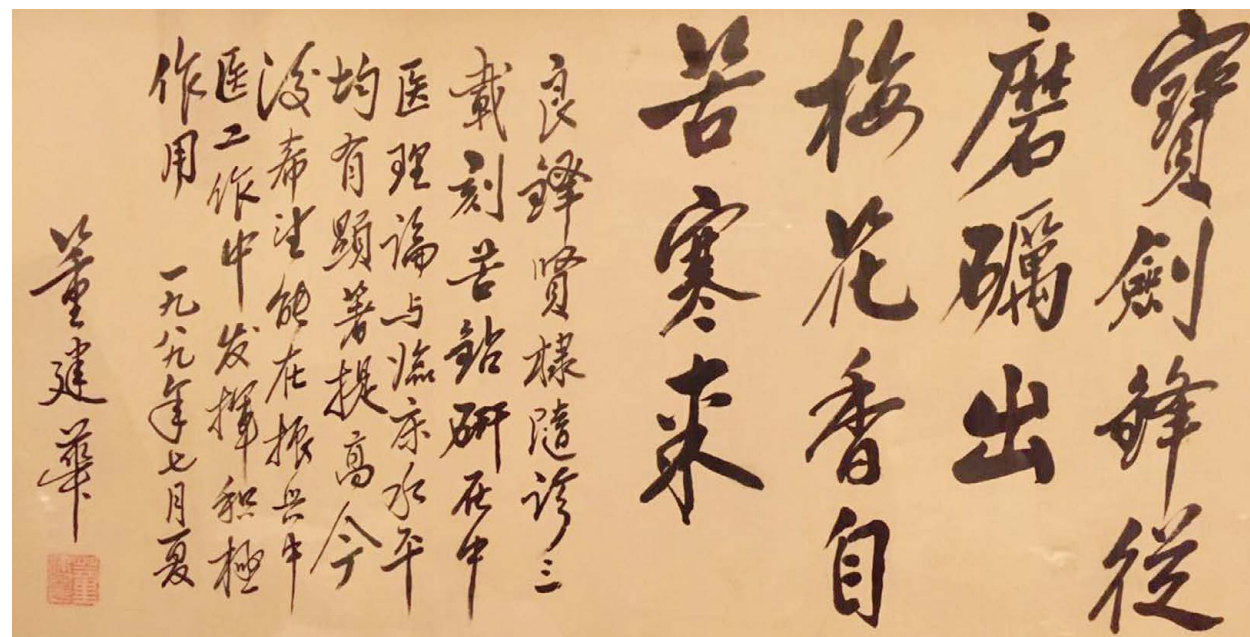 寶劍鋒從
磨礪出
梅花香自
苦寒来
良鐸贤棣隨診三
載刻苦钻研在中
医理論与臨床水平
均有顕著提高今
後希望能在振兴中
医工作中发揮积極
作用 一九八九年七月夏
董建華